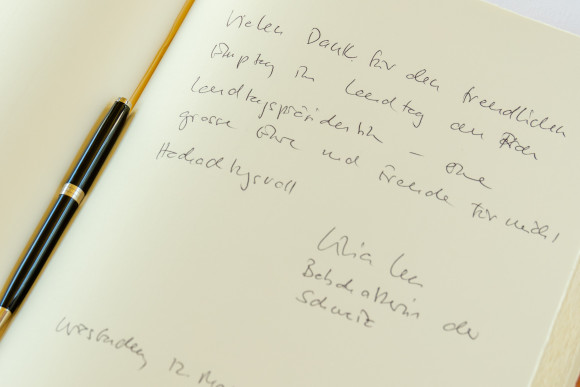 Vielen Dank für den freundlichen
Empfang im Landtag der
Landtagspräsidentin – eine
grosse Ehre und Freude für mich!
Hochachtungsvoll
Botschafterin der
Schweiz
Wiesbaden, 12.